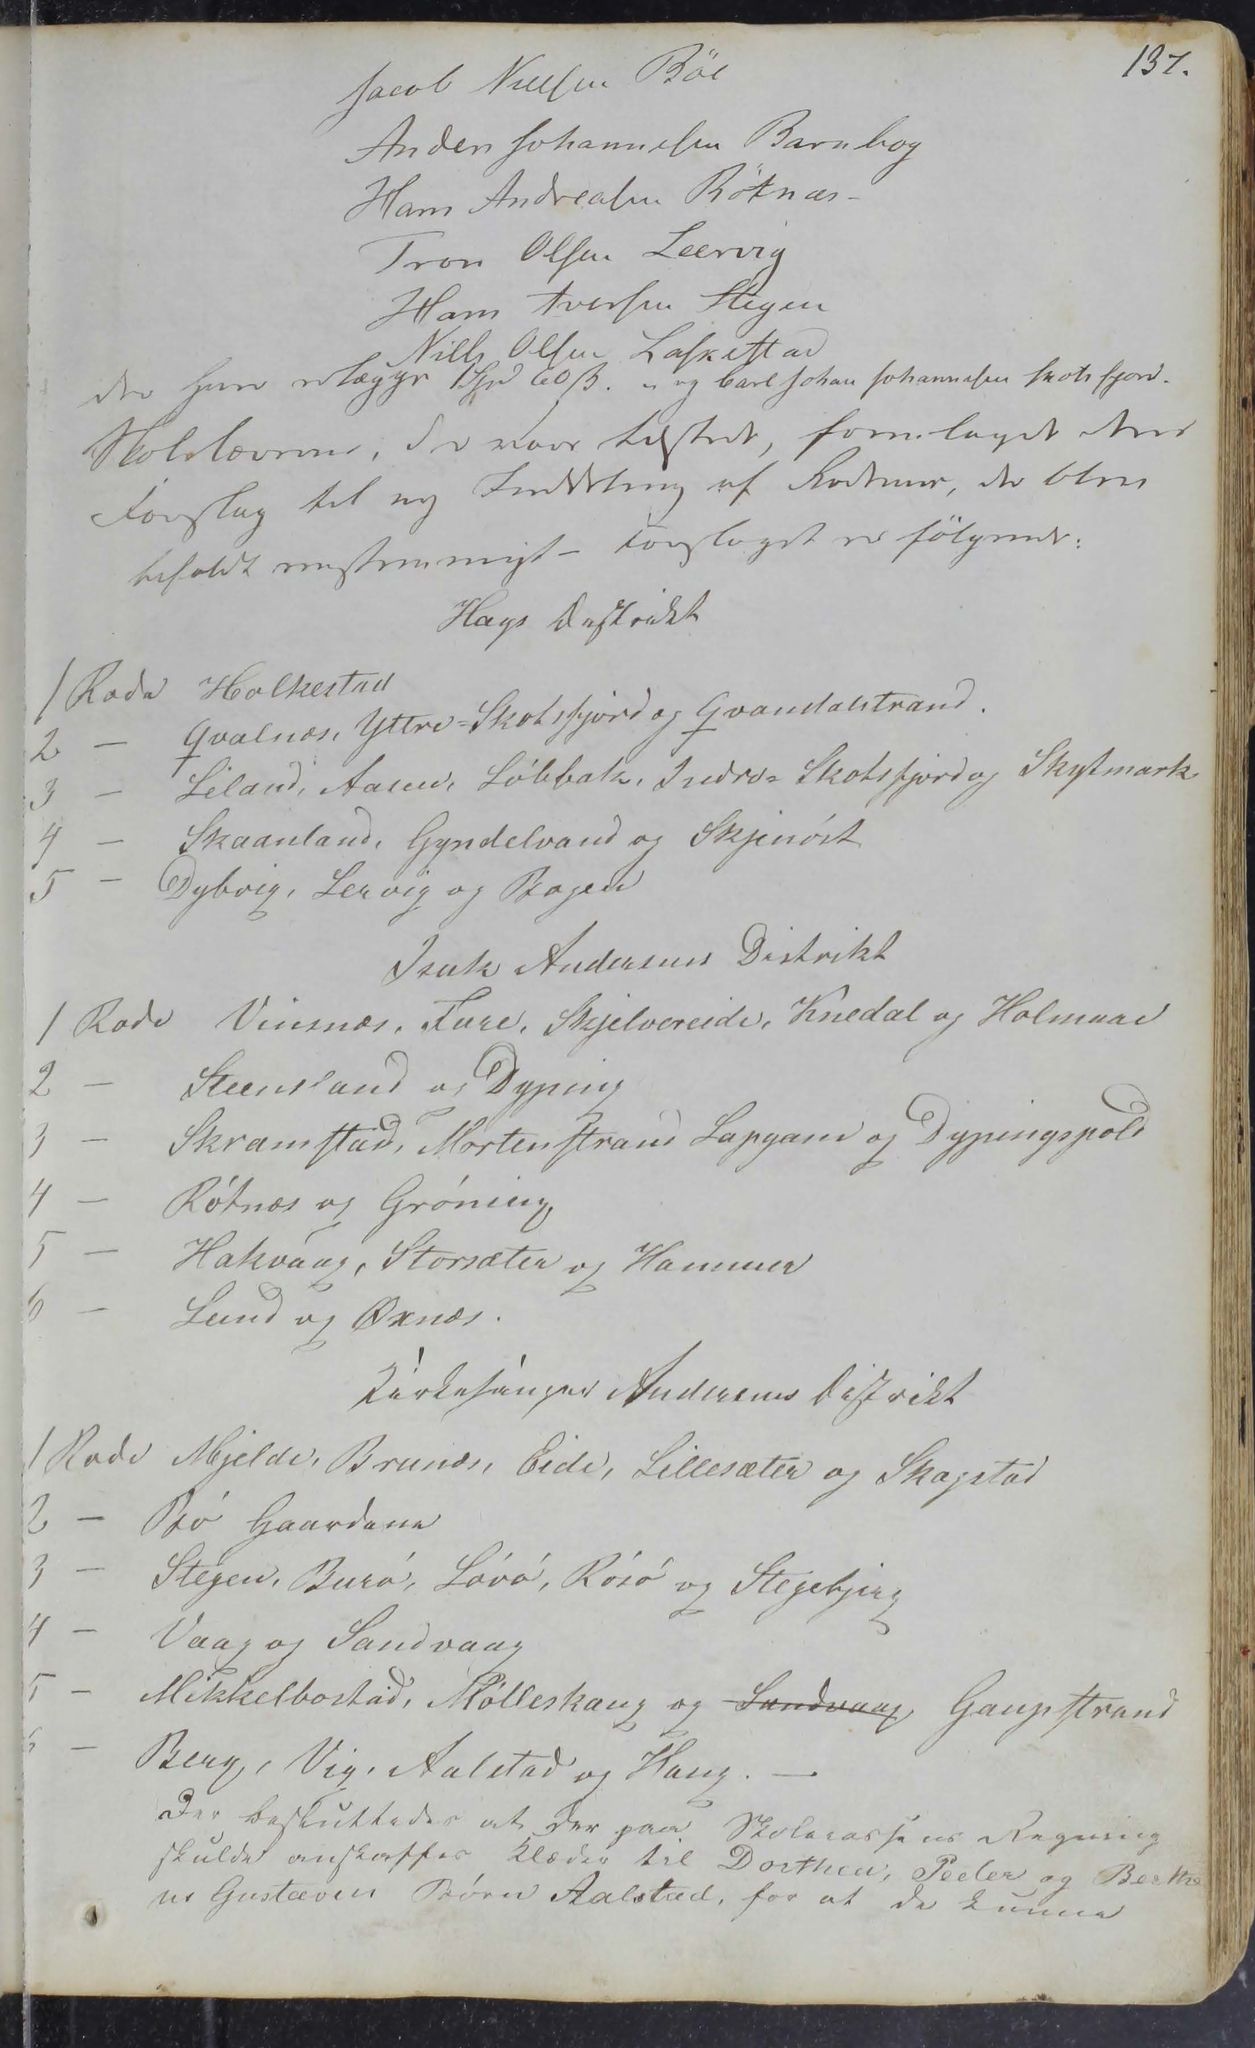 137.
Jacob Nielsen Böe
Anders Johannesen Barnbog
Hans Andreasen Rötnæs
Tron Olsen Leervig
Hans Iversen Stegen
Nills Olsen Laskestad
60 ß. og Carl Johan Johannesen Skotsfjord.
Skolelærerne, der vare tilstede, foreslaget
Forslag til ny Inddeling af Roderne, der blev
bifaldt eenstemmigt - Forslaget er fölgende:
Hags Distrikt
1 Rode Holkestad
2 — Qvalnæs, Yttre=Skotsfjord og Qvandalstrand.
3 — Liland, Aasen, Löbbak, Indre=Skotsfjord og Skytmark
4 — Skaanland, Gyndelvand og Skjenöst
5 — Dybvig, Lervig og Bogen
Isak Andersens Distrikt
1 Rode Vinsnæs, Fure, Skjelvereide, Knedal og Holmaae
2 — Steensland og Dyping
3 — Skramstad, Mortenstrand Lapgam og Dypingspold
4 — Rötnæs og Gröning
5 — Hakvaag, Storsæter og Hammer
6 — Lund og Øxnæs.
Kirkesanger Andersens Distrikt
1 Rode Mjelde, Brunæs, Eide, Lillesæter og Skagstad
2 — Bö Gaardene
3 — Stegen, Burö, Lövö, Rösö og Stegebjerg
4 — Vaag og Sandvaag
5 — Mikkelbostad, Mölleskaug og Sandvaag Gaupstrand
— Berg, Vig, Aalstad og Haug. —
Der besluttedes at der paa Skolecassens Regning
skulde anskaffes Klæder til Dorthea, Peder og Berthe
Gustavens Börn Aalstad, for at de kunne